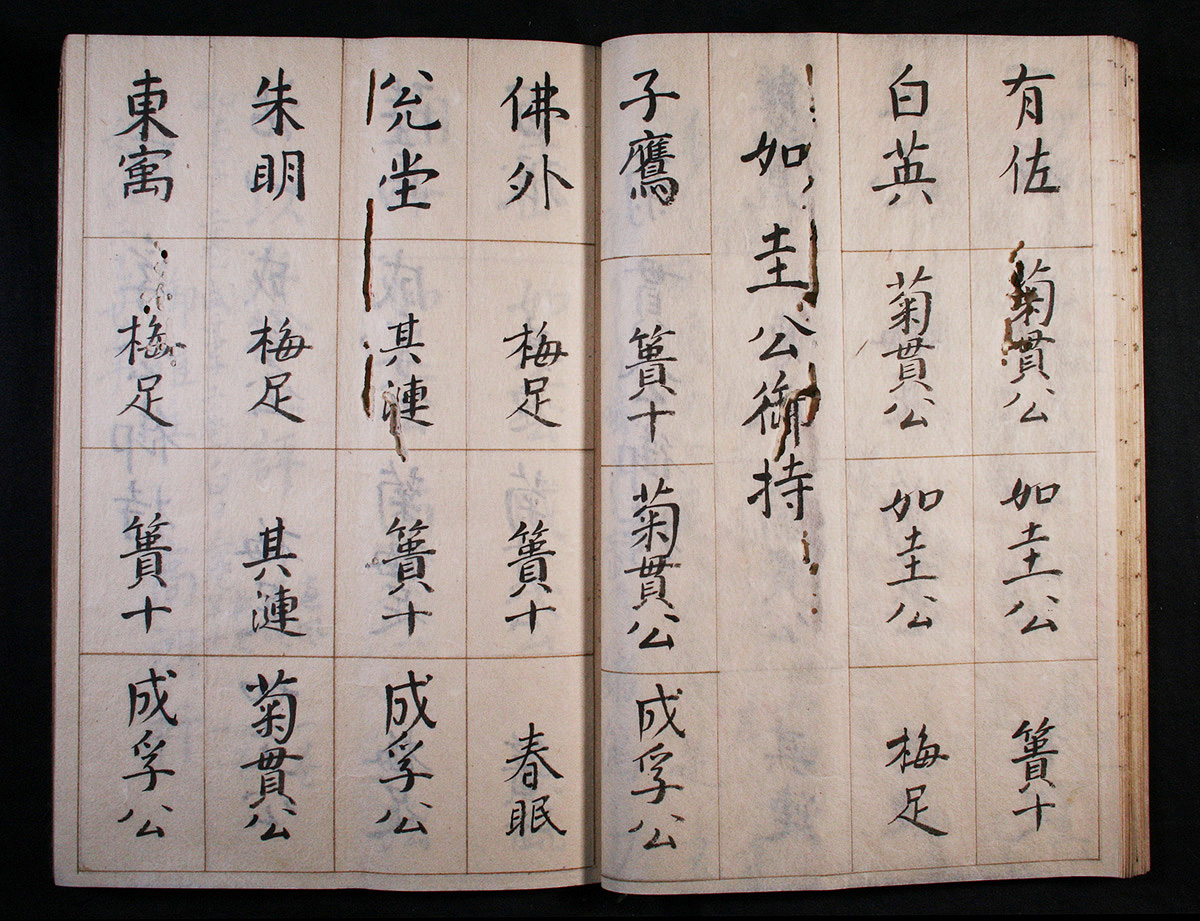 有佐 菊貫公 如圭公 簣十
白英 菊貫公 如圭公 梅足
如圭公御持
子鷹 簣十 菊貫公 成孚公
佛外 梅足 簣十 春眠
兊堂 其漣 簣十 成孚公
朱明 梅足 其漣 菊貫公
東寓 梅足 簣十 成孚公